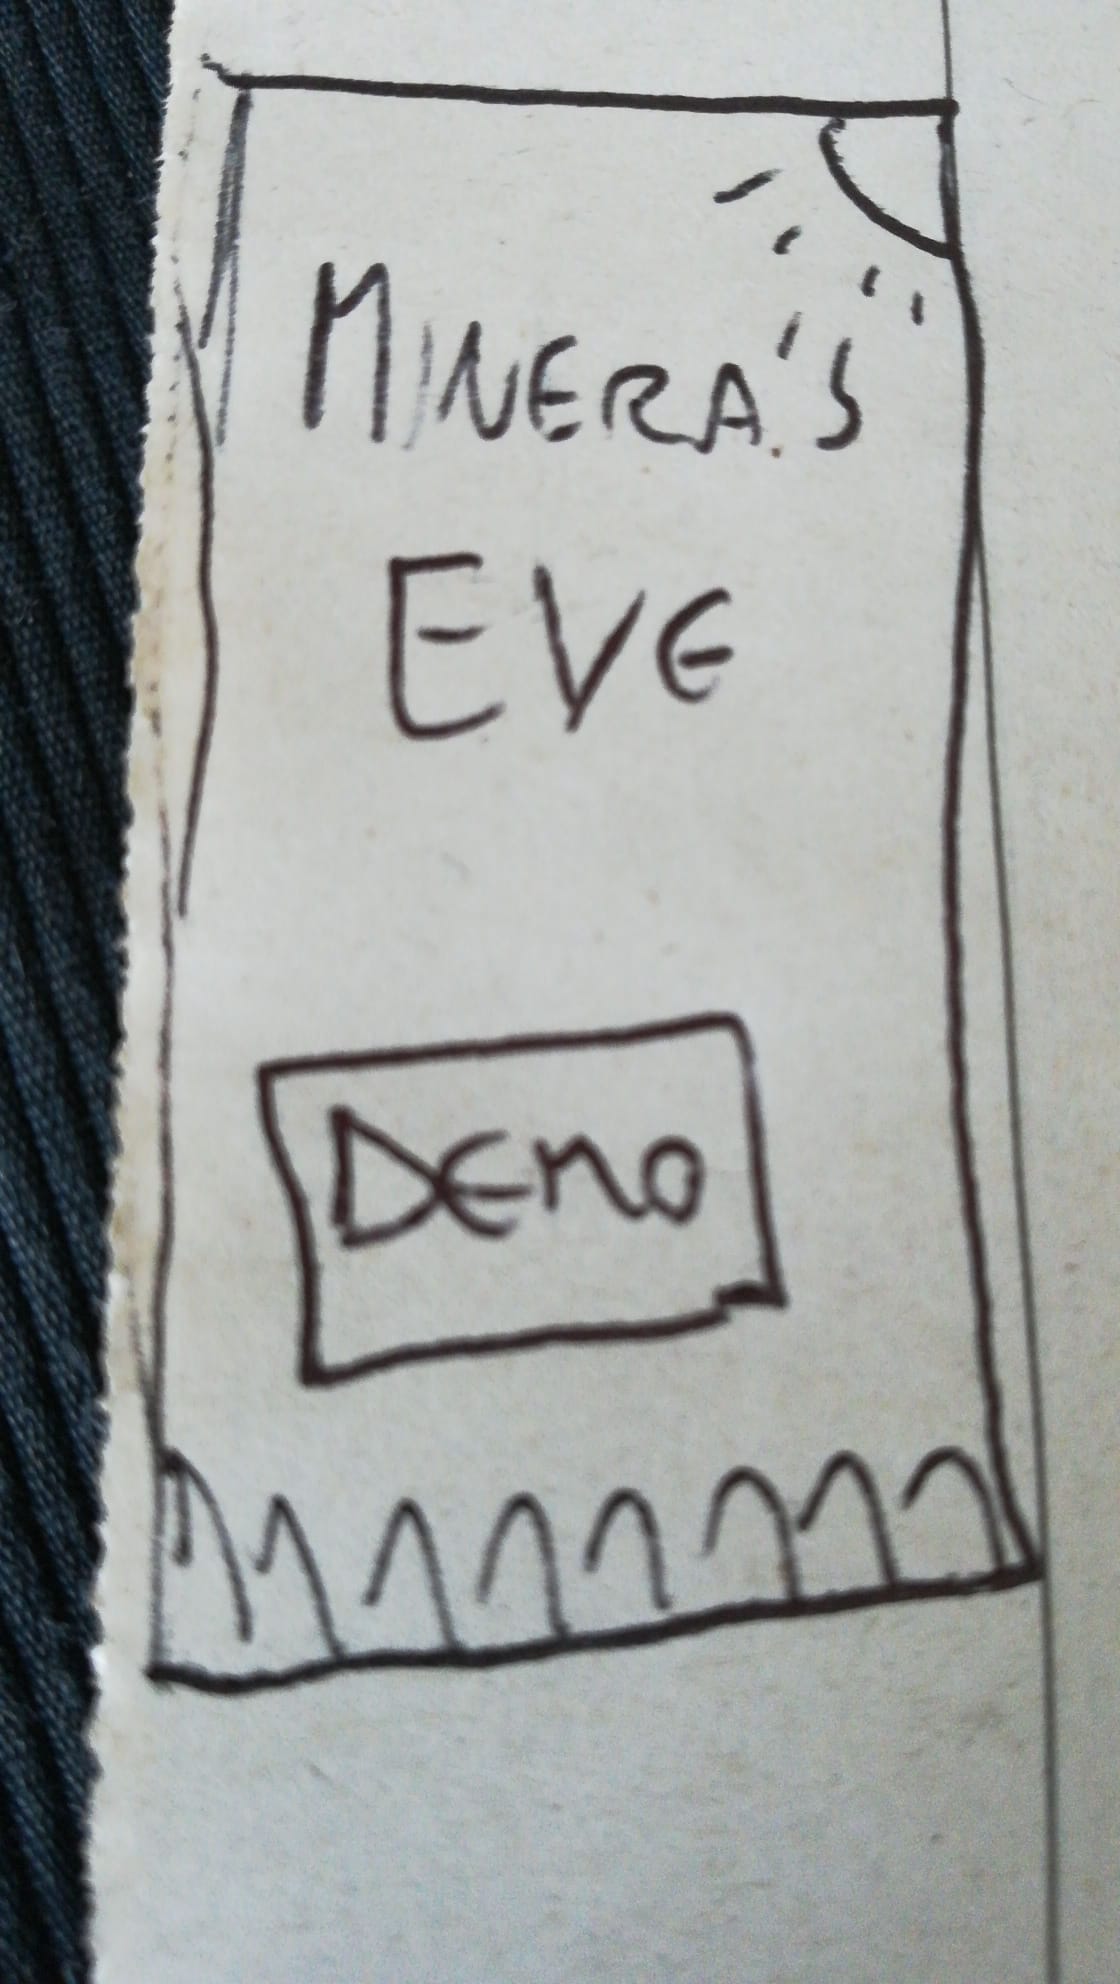 MINERA'S
EVE
DEMO